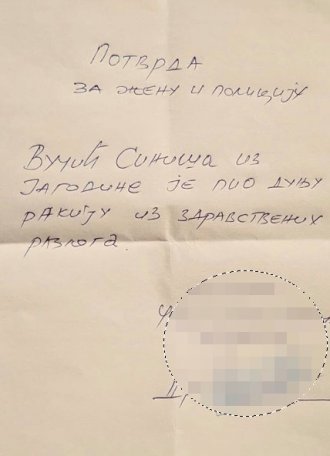 Потврда
за жену и полицију
Вучић Синиша из
Јагодине је пио дуњу
ракију из здравствених
разлога.